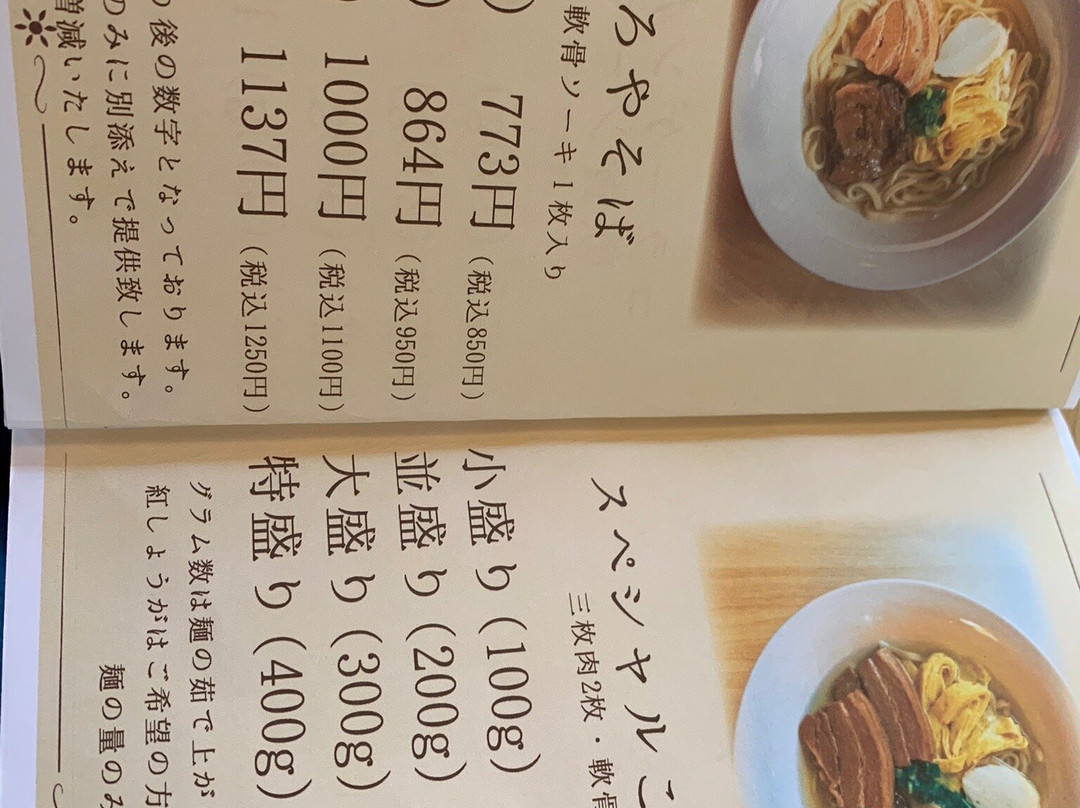 ろやそば
軟骨ソーキ1枚入り
) 773円 (税込850円)
) 864円 (税込950円)
1000円 (税込1100円)
1137円 (税込1250円)
後の数字となっております。
のみに別添えで提供致します。
増減いたします。
スペシャルこ
三枚肉2枚・軟骨
小盛り(100g)
並盛り(200g)
大盛り(300g)
特盛り(400g)
グラム数は麺の茹で上が
紅しょうがはご希望の方
麺の量のみ